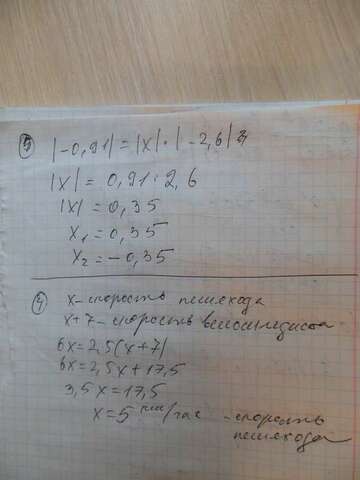 ③ |-0,91| = |x| · |-2,6|
|x| = 0,91 : 2,6
|x| = 0,35
x₁ = 0,35
x₂ = -0,35
④ x - скорость пешехода
x+7 - скорость велосипедиста
6x = 2,5(x+7)
6x = 2,5x + 17,5
3,5x = 17,5
x = 5 км/час - скорость
пешехода